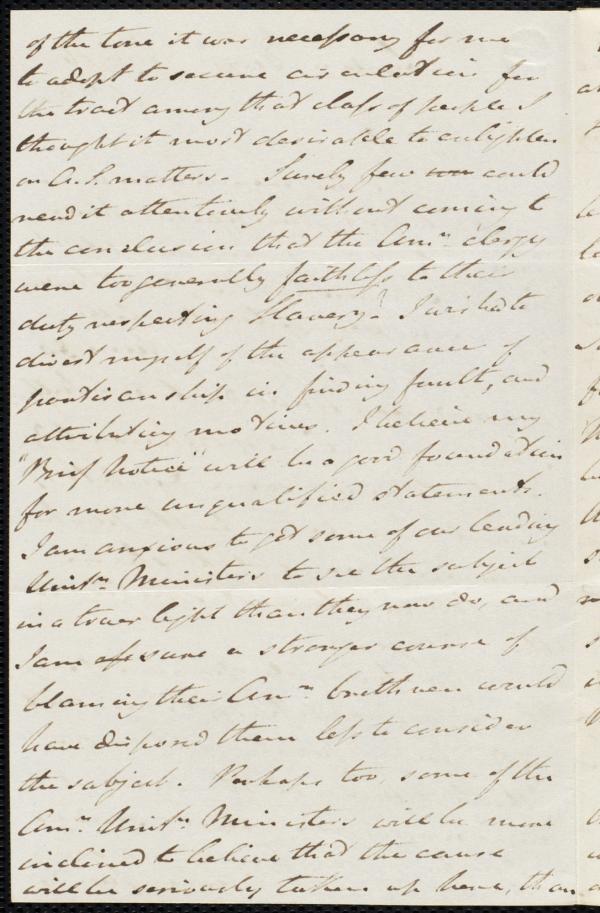 of the tone it was necessary for me
to adopt to secure circulation for
the tract among that class of people I
thought it most desirable to enlighten
on A.S. matters. Surely few could
read it attentively without coming to
the conclusion that the Amn. clergy
were too generally faithless to their
duty respecting Slavery? I wish to
divest myself of the appearance of
partisanship in finding fault, and
attributing motives. I believe my
"Brief Notice" will be a good foundation
for more unqualified statements.
I am anxious to get some of our leading
Unitn. Ministers to see the subject
in a truer light than they now do, and
I am assured a stronger course of
blaming their Amn. brethren would
have disposed them less to consider
the subject. Perhaps too, some of the
Amn. Unitn. Ministers will be more
inclined to believe that the cause
will be seriously taken up here, than